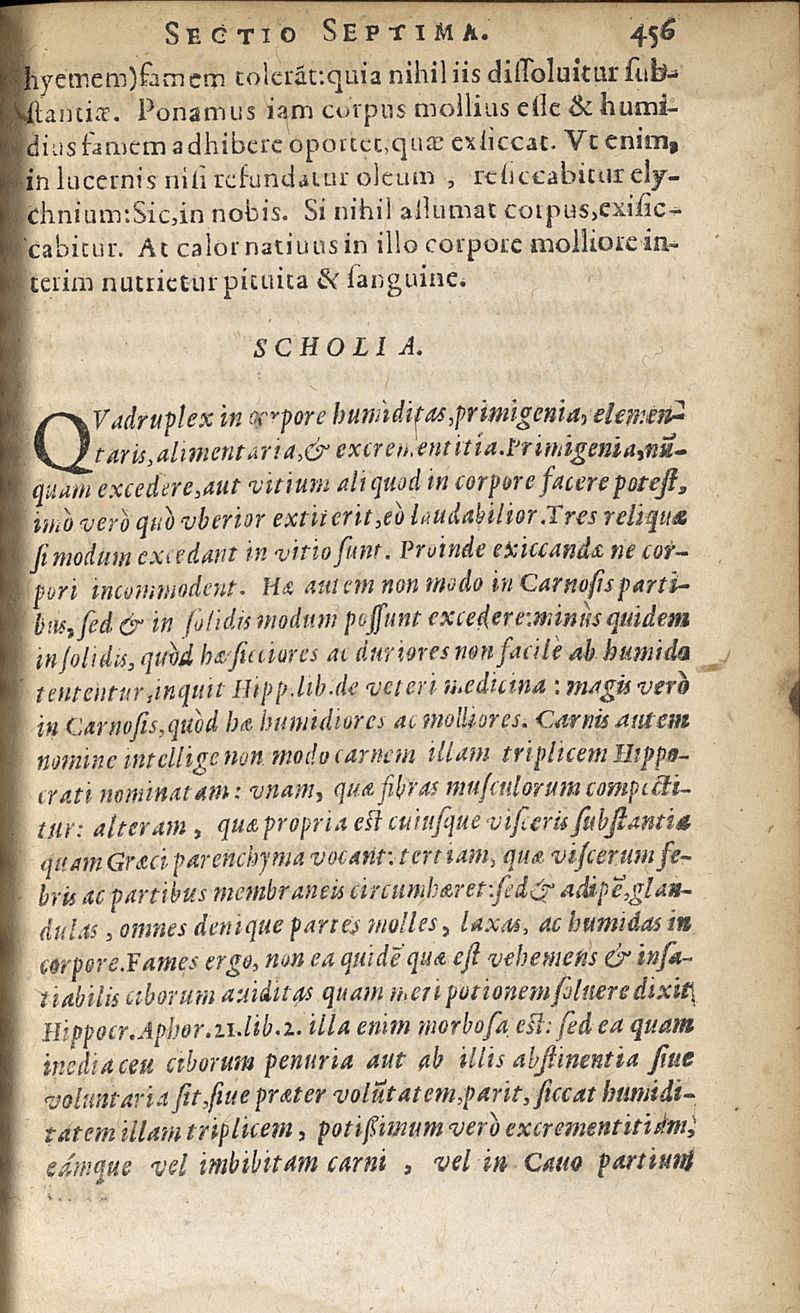 SECTIO SEPTIMA. 456
hyemem)famem tolerāt:quia nihil iis diſſoluitur ſub-
ſtantiæ. Ponamus iam corpus mollius eſſe & humi-
dius famem adhibere oportet,quæ exſiccat. Vt enim,
in lucernis niſi refundatur oleum , reſiccabitur ely-
chnium:Sic,in nobis. Si nihil aſſumat corpus,exiſic-
cabitur. At calor natiuus in illo corpore molliore in-
terim nutrietur pituita & ſanguine.
SCHOLIA.
QVadruplex in corpore humiditas,primigenia, elemen-
taris,alimentaria,& excrementitia.Primigenia,nū-
quam excedere,aut vitium aliquod in corpore facere poteſt,
imò verò quò vberior extiterit,eò laudabilior.Tres reliquæ
ſi modum excedant in vitio ſunt. Proinde exiccandæ ne cor-
pori incommodent. Hæ autem non modo in Carnoſis parti-
bus, ſed & in ſolidis modum poſſunt excedere:minùs quidem
in ſolidis, quòd hæ ſicciores ac duriores non facilè ab humido
tententur,inquit Hipp.lib.de veteri medicina : magis verò
in Carnoſis,quòd hæ humidiores ac molliores. Carnis autem
nomine intellige non modo carnem illam triplicem Hippo-
crati nominatam: vnam, quæ fibras muſculorum complecti-
tur: alteram , quæ propria eſt cuiuſque viſceris ſubſtantia
quam Græci parenchyma vocant: tertiam, quæ viſcerum fe-
bris ac partibus membraneis circumhæret:ſed & adipē,glan-
dulas , omnes denique partes molles, laxas, ac humidas in
corpore.Fames ergo, non ea quidē quæ eſt vehemens & inſa-
tiabilis ciborum auiditas quam meri potionem ſoluere dixit
Hippocr.Aphor.21.lib.2. illa enim morboſa eſt: ſed ea quam
inedia ceu ciborum penuria aut ab illis abſtinentia ſiue
voluntaria ſit,ſiue præter volūtatem,parit, ſiccat humidi-
tatem illam triplicem , potiſſimum verò excrementitiam,
eámque vel imbibitam carni , vel in Cauo partium